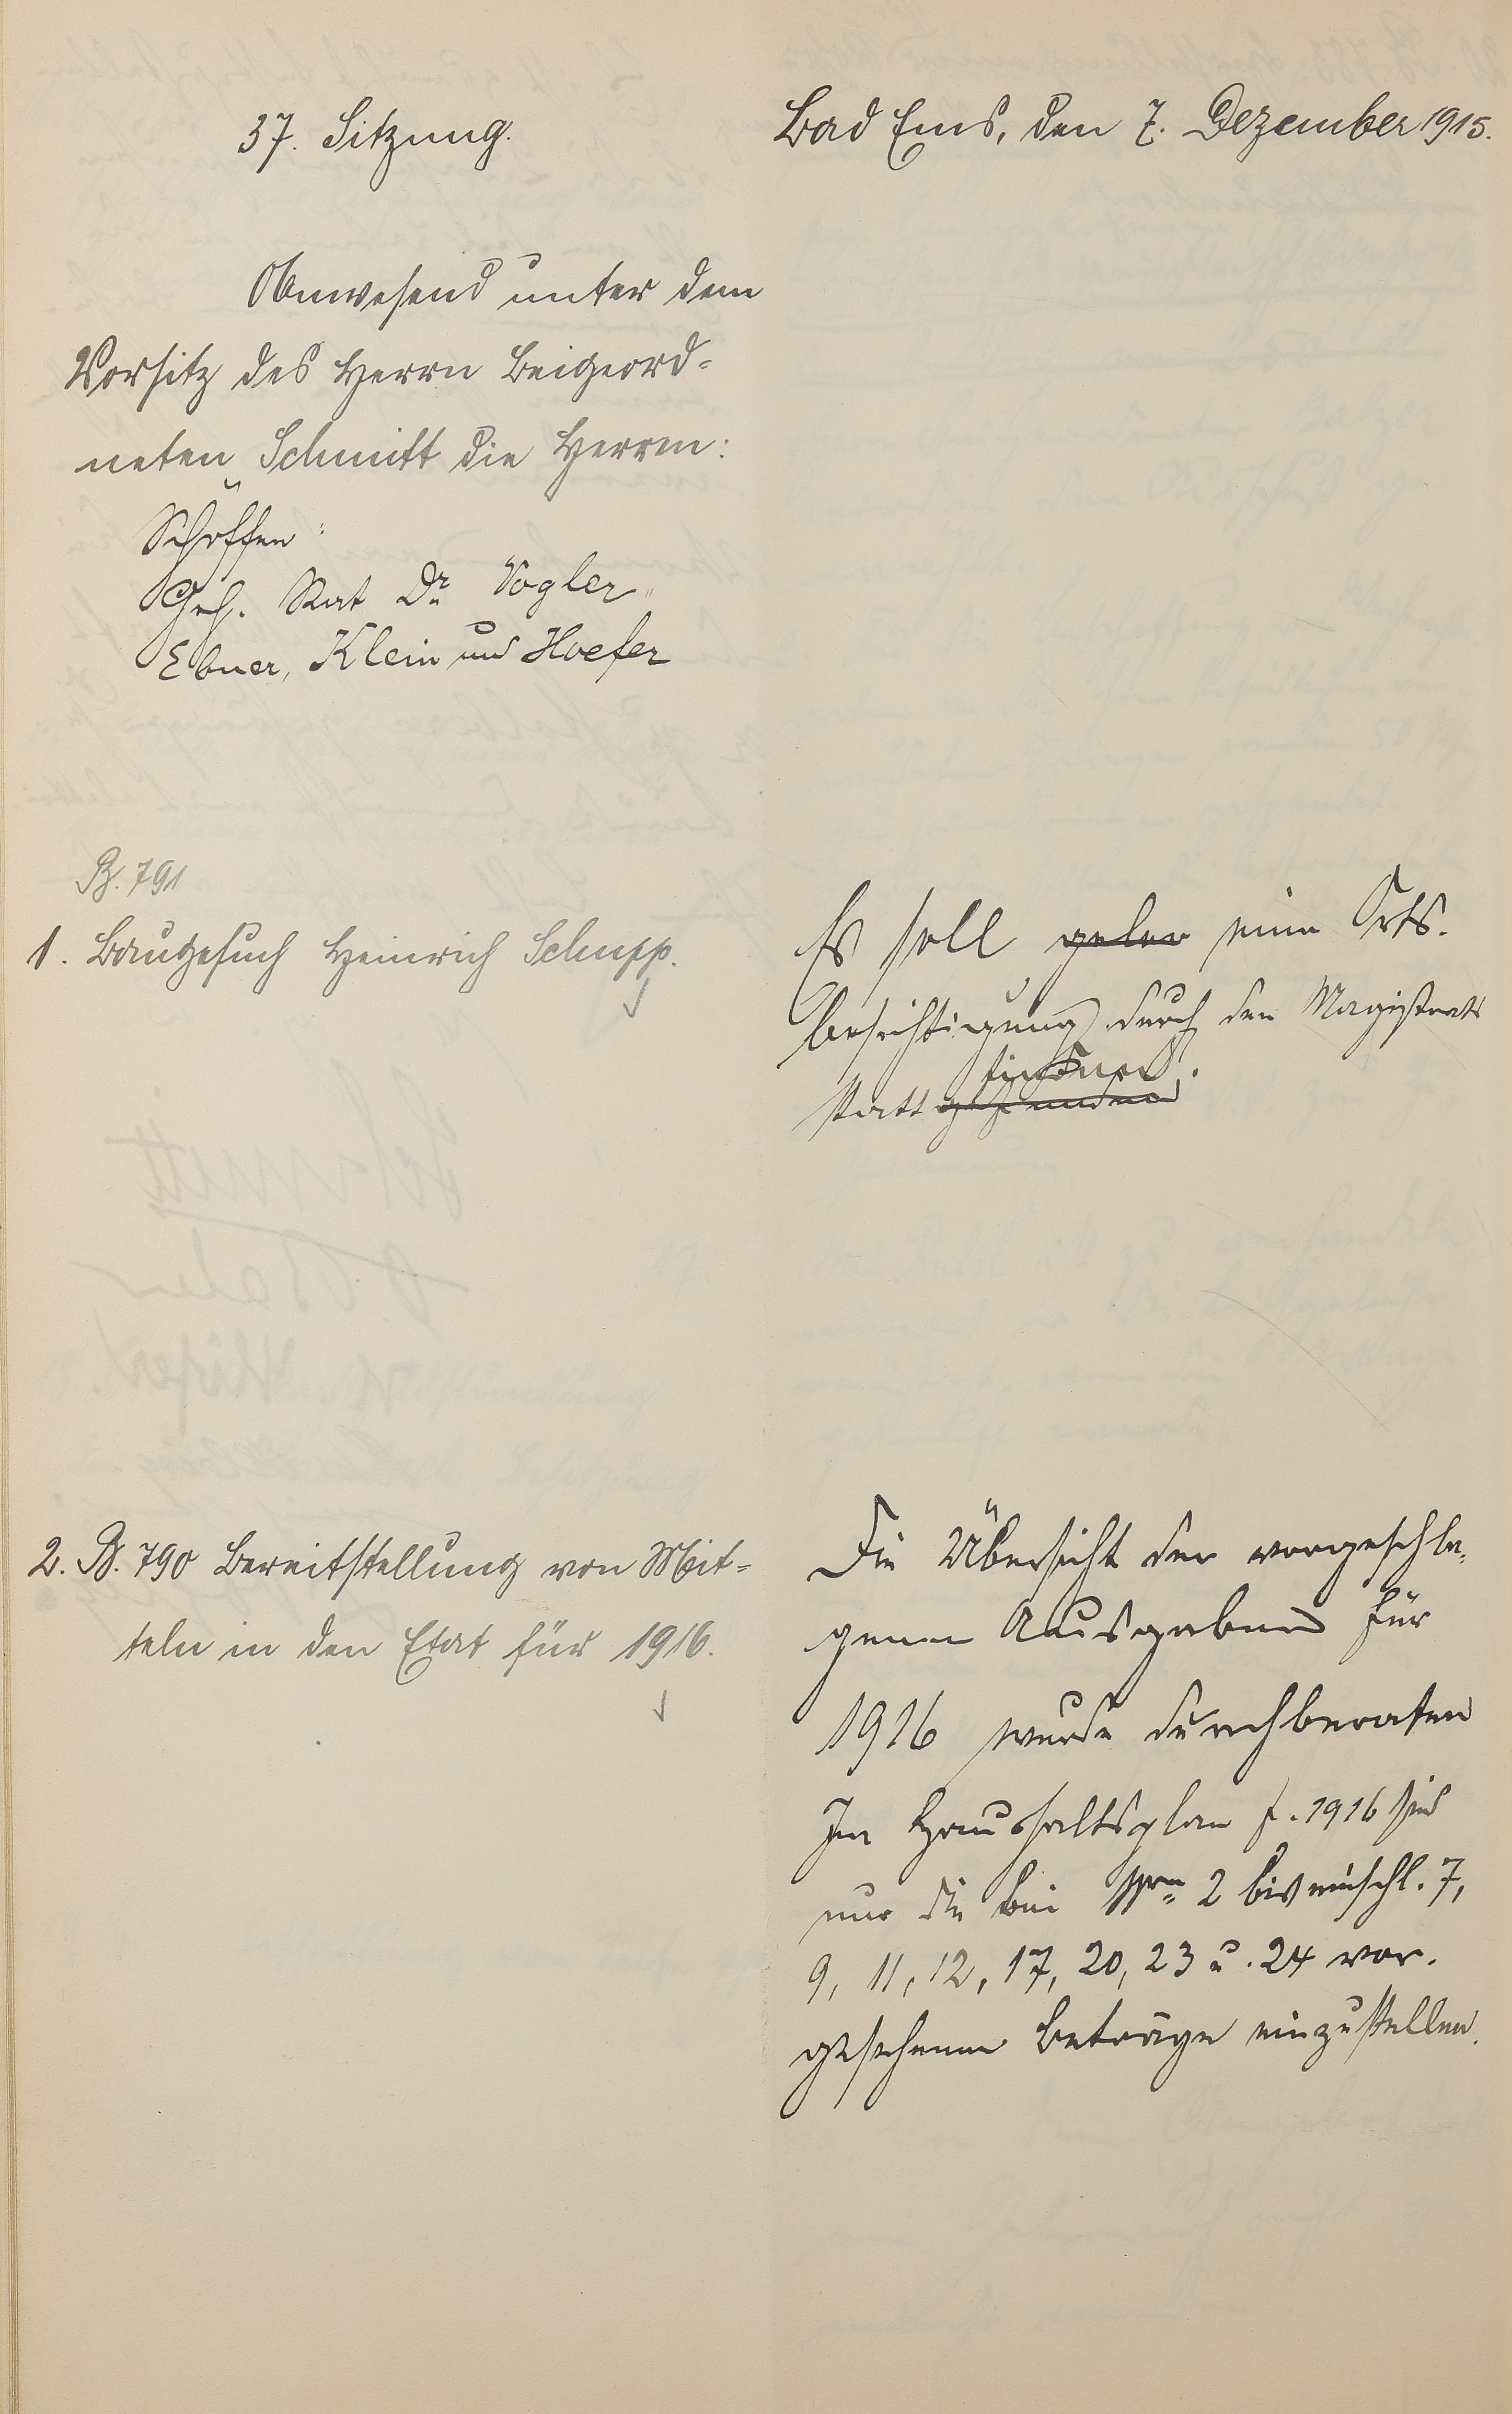 37. Sitzung.
Bad Ems, den 7. Dezember 1915.
Anwesend unter dem
Vorsitz des Herrn Beigeord-
neten Schmitt die Herren:
Schöffen:
Geh. Rat Dr. Vogler,
Ebner, Klein und Hoefer
B. 791
1. Baugesuch Heinrich Schupp.
Es soll eine Orts-
besichtigung durch den Magistrat
finden.
statt
2. B. 790 Bereitstellung von Mit-
teln in den Etat für 1916.
Die Übersicht der vorgeschla-
genen Ausgaben für
1916 wurde durchberaten
Im Haushaltsplan f. 1916 sind
nur die bei 2 bis einschl. 7,
9, 11, 12, 17, 20, 23 u. 24 vor-
gesehenen Beträge einzustellen.